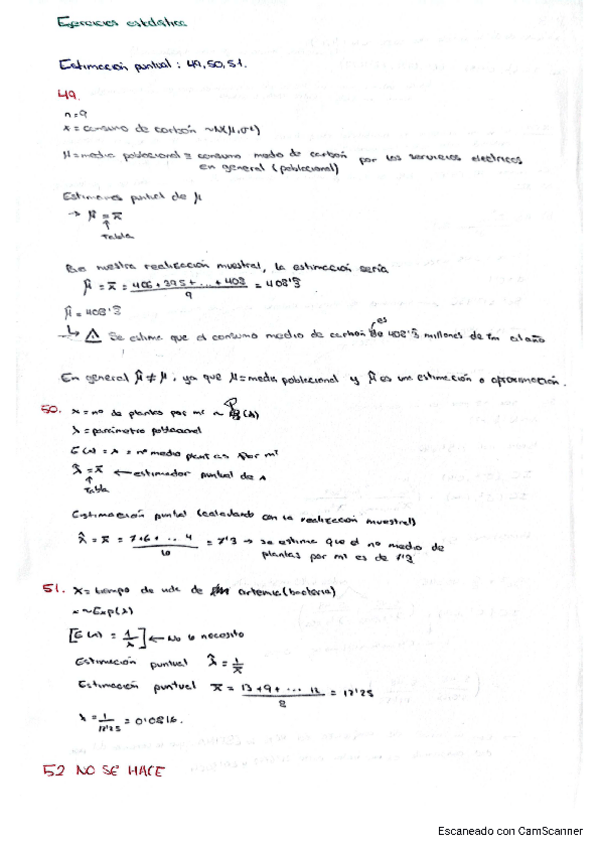 Ejercicios estadística
Estimación puntual: 49, 50, 51.
49.
n=9
x = consumo de carbón ~N(μ,σ²)
μ = media poblacional ≡ consumo medio de carbón por los servicios eléctricos
en general (poblacional)
Estimamos puntual de μ
→ μ̂ = x̄
↑
Tabla
nuestra realización muestral, la estimación sería
μ̂ = x̄ = 406 + 395 + ... + 408 / 9 = 408'3̂
μ̂ = 408'3̂
↳ ⚠ Se estima que el consumo medio de carbón es 408'3̂ millones de Tm al año
En general μ̂ ≠ μ, ya que μ = media poblacional y μ̂ es una estimación o aproximación.
50. x = nº de plantas por m² ~ P(λ)
λ = parámetro poblacional
E(x) = λ = nº medio plantas por m²
λ̂ = x̄ ← estimador puntual de λ
↑
Tabla
Estimación puntual (calculando con la realización muestral)
λ̂ = x̄ = 7+6+ ... 4 / 10 = 7'3 → se estima que el nº medio de
plantas por m² es de 7'3
51. X = tiempo de vida de artemia (bacteria)
x ~ Exp(λ)
[E(x) = 1/λ] ← No lo necesito
Estimación puntual λ̂ = 1/x̄
Estimación puntual x̄ = 13+9+ ... 12 / 8 = 12'25
λ = 1/12'25 = 0'0816.
52 NO SE HACE
Escaneado con CamScanner